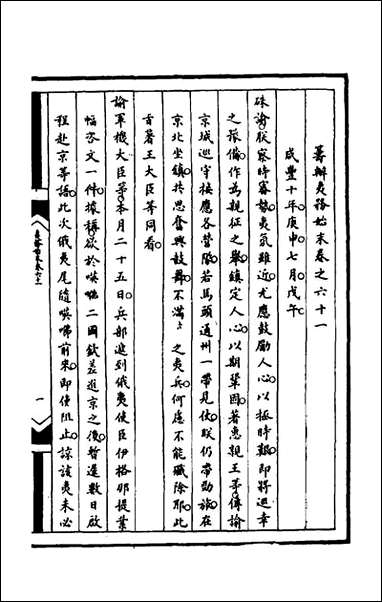 籌辦夷務始末卷之六十一
咸豐十年庚申七月戊午
硃諭朕察時審勢夷氛雖近尤應鼓勵人心以拯時艱即將巡幸
之預備作為親征之舉鎮定人心以期鞏固著惠親王等傳諭
京城巡守接應各營隊若馬頭通州一帶見仗朕仍帶勁旅在
京北坐鎮共思奮興鼓舞不滿萬之夷兵何慮不能殲除耶此
旨著王大臣等同看
諭軍機大臣等本月二十五日兵部遞到俄夷使臣伊格那提業
幅咨文一件據稱欲於㗸咈二國欽差進京之後暫遲數日啟
程赴京等語此次俄夷尾隨㗸咈前來即使阻止諒該夷未必
夷務始末卷六十一
一